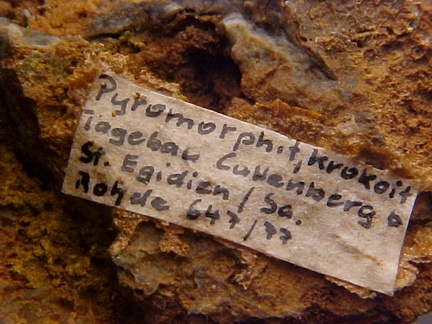 Pyromorphit, Krokoit
Tagebau Callenberg b
St. Egidien / Sa.
Rohde 647/77